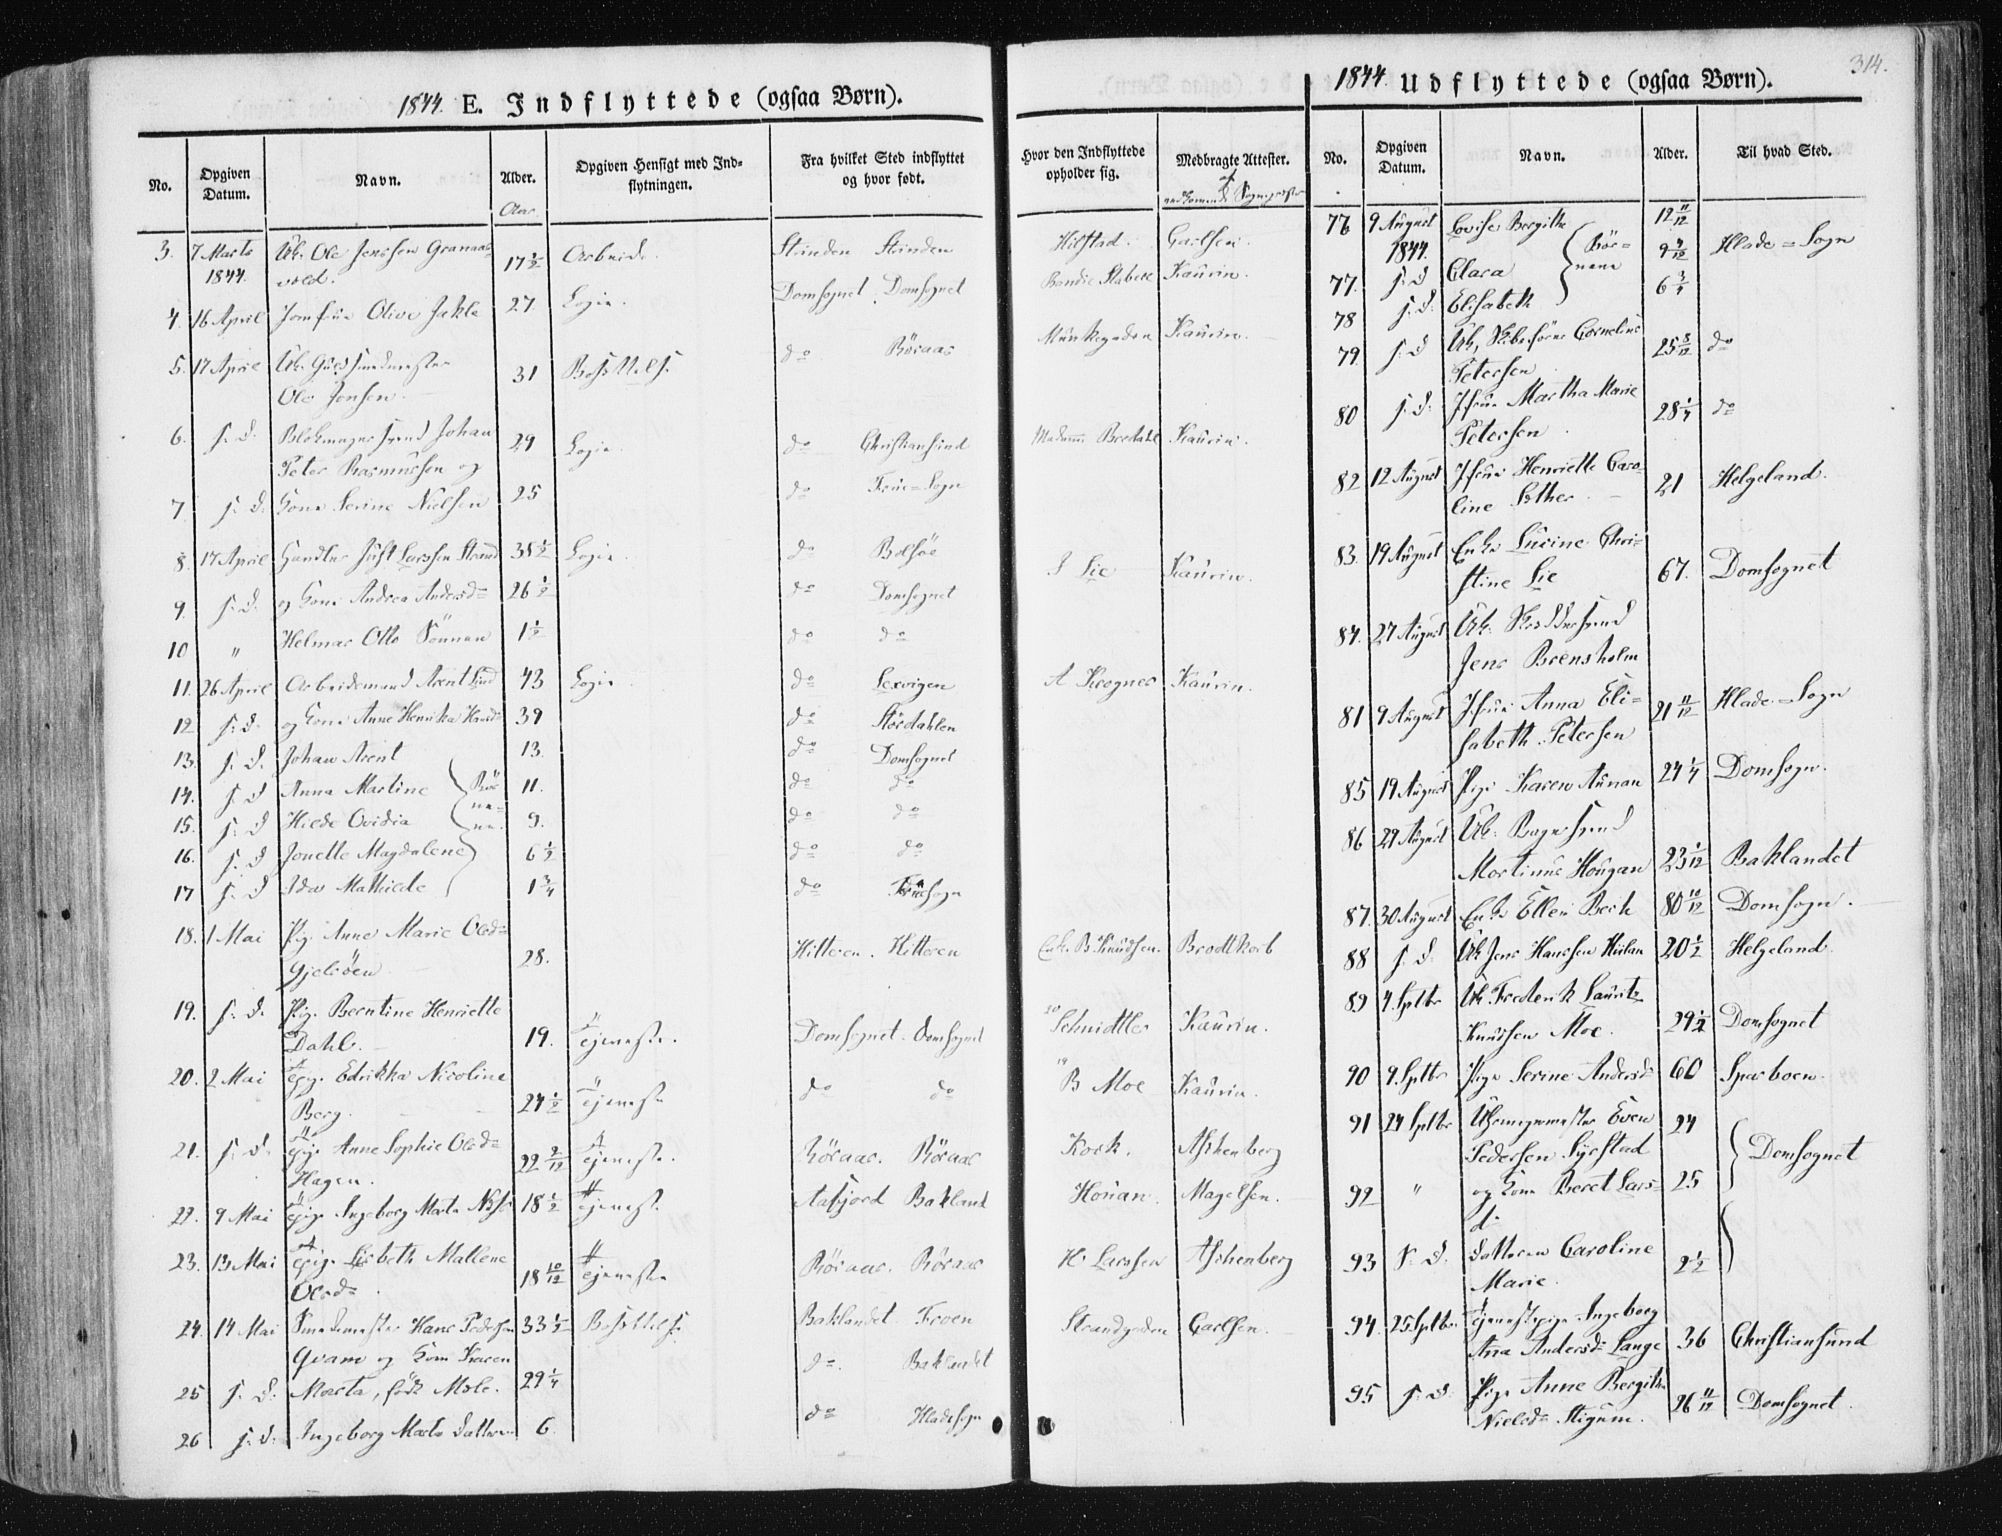 314.
1844. E. Indflyttede (ogsaa Børn).
No. Opgiven Datum. Navn. Alder. Opgiven Hensigt med Indflytningen. Fra hvilket Sted indflyttet og hvor født. Hvor den Indflyttede opholder sig. Medbragte Attester.
Aar
3. 7 Marts Uk. Ole Jenssen Granaas 17 1/2 Arbeide. Strinden Strinden Carlsen.
1844. vold.
4. 16 April Jomfrue Olive Jakle 27. Logie. Domsognet. Domsognet Kaurin.
5. 17 April Uk. Guldsmedmester 31 do Röraas Munkegaden Kaurin.
Ole Jensen
6. s. d. Johan 29 Logie. do Christiansund Madam Kaurin.
Peter Rasmussen og
7. s. d. Kone Serine Nielsen 25 do Frue=Sogn
8. 17 April Handler Just Larssen Strand 35 1/2 Logie. do Bolsöe I Lie Kaurin.
9. s. d. og Kone Andrea Andersd= 26 1/2 do Domsognet
10 " Helmar Otto Sönnen 1 1/2 do do
11. 26 April Arbeidsmand Arent Lind 43 Logie. do Lexvigen A Krogner Kaurin.
12 s. d. og Kone Anne Henrika 39 do Stördahlen
13. s. d. Johan Arent 13. do Domsognet
14. s. d Anna Martine Bör 11. do do
15. s. d Hilde Ovidia ne= 9. do do
16. s. d Jonette Magdalene 6 1/2 do do
17 s. d Ida Mathilde 1 3/4 do Fruesogn
18. 1 Mai Pig. Anne Marie Olsd=
Gjelsöen 28. Hitteren. Hitteren Enk. B. Knudsen. Brodtkorb
19. s. d. Pig. Berntine Henriette
Dahl. 19. Tjeneste. Domsognet. Domsognet Schmidtler Kaurin.
20. 2 Mai Tpige Edrikka Nicoline
Berg. 24 1/2 Tjeneste do do B Moe Kaurin.
21. s. d. Tpige Anne Sophie Olsd=
Hagen. 22 2/12 Tjeneste. Röraas. Röraas Kork. Aschenberg
22. 9 Mai Tpige Ingeborg Marta 18 1/2 Tjeneste Aafjord Bakland Houan. Magelsen.
23. 13 Mai Tpige Lisbeth Mallene
Olsd= 18 10/12 Tjeneste Röraas. Röraas H. Larssen Aschenberg
24. 14 Mai Smedmester Hans Pedersen 33 1/2 Baklandet. Froen Strandgaden Carlsen.
Qvam og Kone Karen
25 s. d. Marta, född Mole. 29 1/4 do. Baklandet
26 s. d. Ingeborg Marta Datteren 6. do Hladesogn
1844. Udflyttede (ogsaa Børn).
No. Opgiven Datum. Navn. Alder. Til hvad Sted.
76 9 August Lovise Bergithe 12 11/12
1844. Bör= 9 4/12 Hlade=Sogn
77. s. d Clara nene
78 s. d. Elisabeth 6 3/4
79. s. d Uk, Cornelius 25 8/12 do
Petersen
80 s. d. Jfrue Martha Marie 28 1/4 do
Petersen
82 12 August Jfrue Henriette Caro= 21 Helgeland.
line
83. 19 August Enke Lucine Chri=
stine Lie 67. Domsognet
84. 27 August Uk. Skrædersvend
Jens Brensholm
81 9 August Jfrue Anna Eli= 21 11/12 Hlade=Sogn
sabeth Petersen
85 19 August Pige Karen Aunan 24 1/4 Domsogn.
86 29 August Uk. Bagersvend
Martinus Hougan 23 1/12 Baklandet
87. 30 August Enke Ellen Berk 80 10/12 Domsogn.
88 s. d. Uk Jens Hanssen 20 1/2 Helgeland.
89 4. Sptbr Uk. Frederik Lauritz
Knudsen Moe. 29 1/2 Domsognet
90 9. Sptbr Pige Serine Andersd= 60 Sparboen.
91 24 Sptbr Even 24
Pedersen Syrstad Domsognet
92 " og Kone Beret Lars= 25
d=
93 s. d. Datteren Caroline 2 1/2
Marie.
94. 25 Sptbr. Tjenestepige Ingeborg
Ana Andersd= Lange 36 Christiansund
95 s. d. Pige Anne Bergithe
Nielsd= Stigum. 26 11/12 Domsognet.